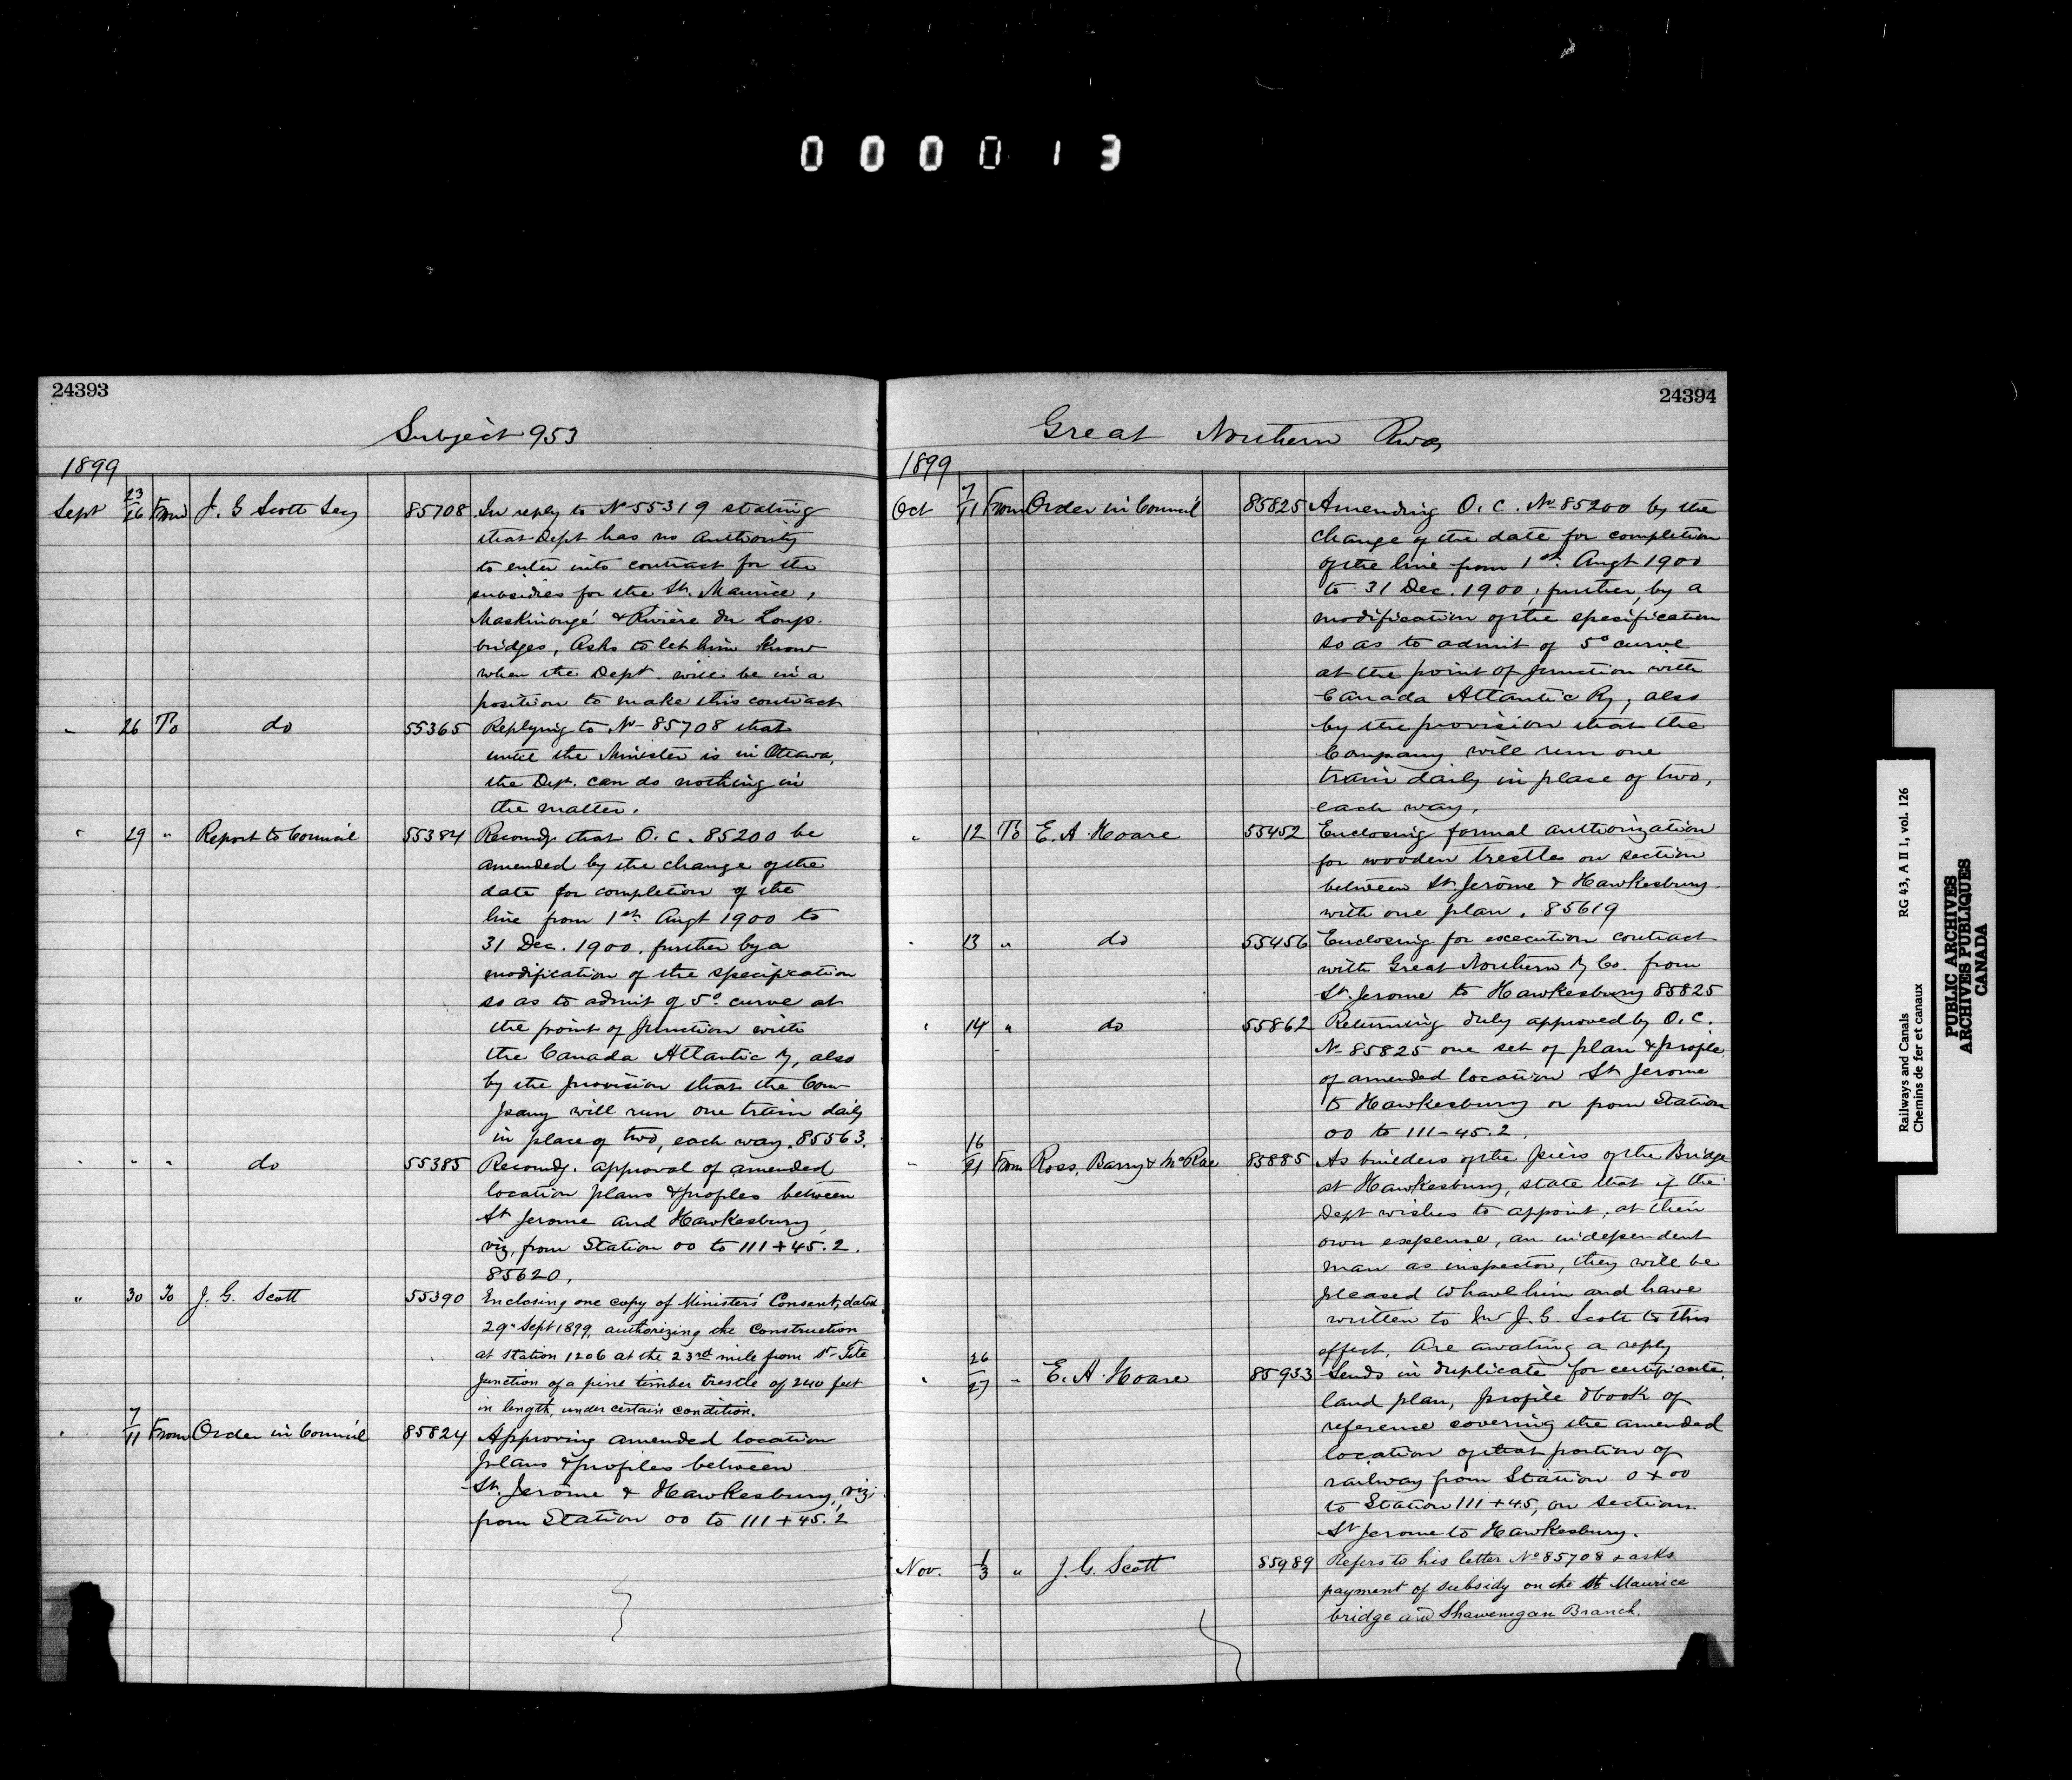 000013
24393
Subject 953
1899
Sept 23/26 From J. G Scott Secy 85708 In reply to No 55319 stating
that Dept has no authority
to enter into contract for the
subsidies for the St. Maurice,
Maskinongé & Rivière du Loup.
bridges, Asks to let him know
when the Dept. will be in a
position to make this contract
" 26 To do 55365 Replying to No 85708 that
until the Minister is in Ottawa,
the Dept. can do nothing in
the matter.
" 29 " Report to Council 55384 Recomdg that O. C. 85200 be
amended by the change of the
date for completion of the
line from 1st Augt 1900 to
31 Dec. 1900, further by a
modification of the specification
so as to admit of 5° curve at
the point of junction with
the Canada Atlantic Ry, also
by the provision that the Com
pany will run one train daily
in place of two, each way. 85563.
" " " do 55385 Recomdg. approval of amended
location plans & profiles between
St Jerome and Hawkesbury,
viz, from Station 00 to 111+45.2.
85620.
" 30 To J. G. Scott 55390 Enclosing one copy of Ministers' Consent, dated
29" Sept 1899, authorizing the Construction
at Station 1206 at the 23rd mile from St-Tite
Junction of a pine timber trestle of 240 feet
in length, under certain condition.
" 7/11 From Order in Council 85824 Approving amended location
plans & profiles between
St. Jerôme & Hawkesbury, viz:
from Station 00 to 111+45.2
24394
Great Northern Rway
1899
Oct 7/11 From Order in Council 85825 Amending O. C. No 85200 by the
change of the date for completion
of the line from 1st. Augt 1900
to 31 Dec. 1900; further, by a
modification of the specification
so as to admit of 5° curve
at the point of junction with
Canada Atlantic Ry, also
by the provision that the
Company will run one
train daily in place of two,
each way.
" 12 To E. A. Hoare 55452 Enclosing formal authorization
for wooden trestles on section
between St. Jerôme & Hawkesbury
with one plan. 85619
" 13 " do 55456 Enclosing for execution contract
with Great Northern Ry Co. from
St. Jerome to Hawkesbury 85825
" 14 " do 55862 Returning duly approved by O. C.
No 85825 one set of plan & profile
of amended location St Jerome
to Hawkesbury or from Station
00 to 111-45.2.
" 16/21 From Ross, Barry & McRae 85885 As builders of the piers of the Bridge
at Hawkesbury, state that if the
Dept wishes to appoint, at their
own expense, an independent
man as inspector, they will be
pleased to have him and have
written to Mr J. G. Scott to this
effect. Are awaiting a reply
" 26/27 " E. A. Hoare 85953 Sends in duplicate for certificate,
land plan, profile & book of
reference covering the amended
location of that portion of
railway from Station 0+00
to Station 111+45, on section
St Jerome to Hawkesbury.
Nov. 1/3 " J. G. Scott 85989 Refers to his letter No 85708 & asks
payment of subsidy on the St Maurice
bridge and Shawenegan Branch.
Railways and Canals RG 43, A II 1, vol. 126
Chemins de fer et canaux
PUBLIC ARCHIVES
ARCHIVES PUBLIQUES
CANADA